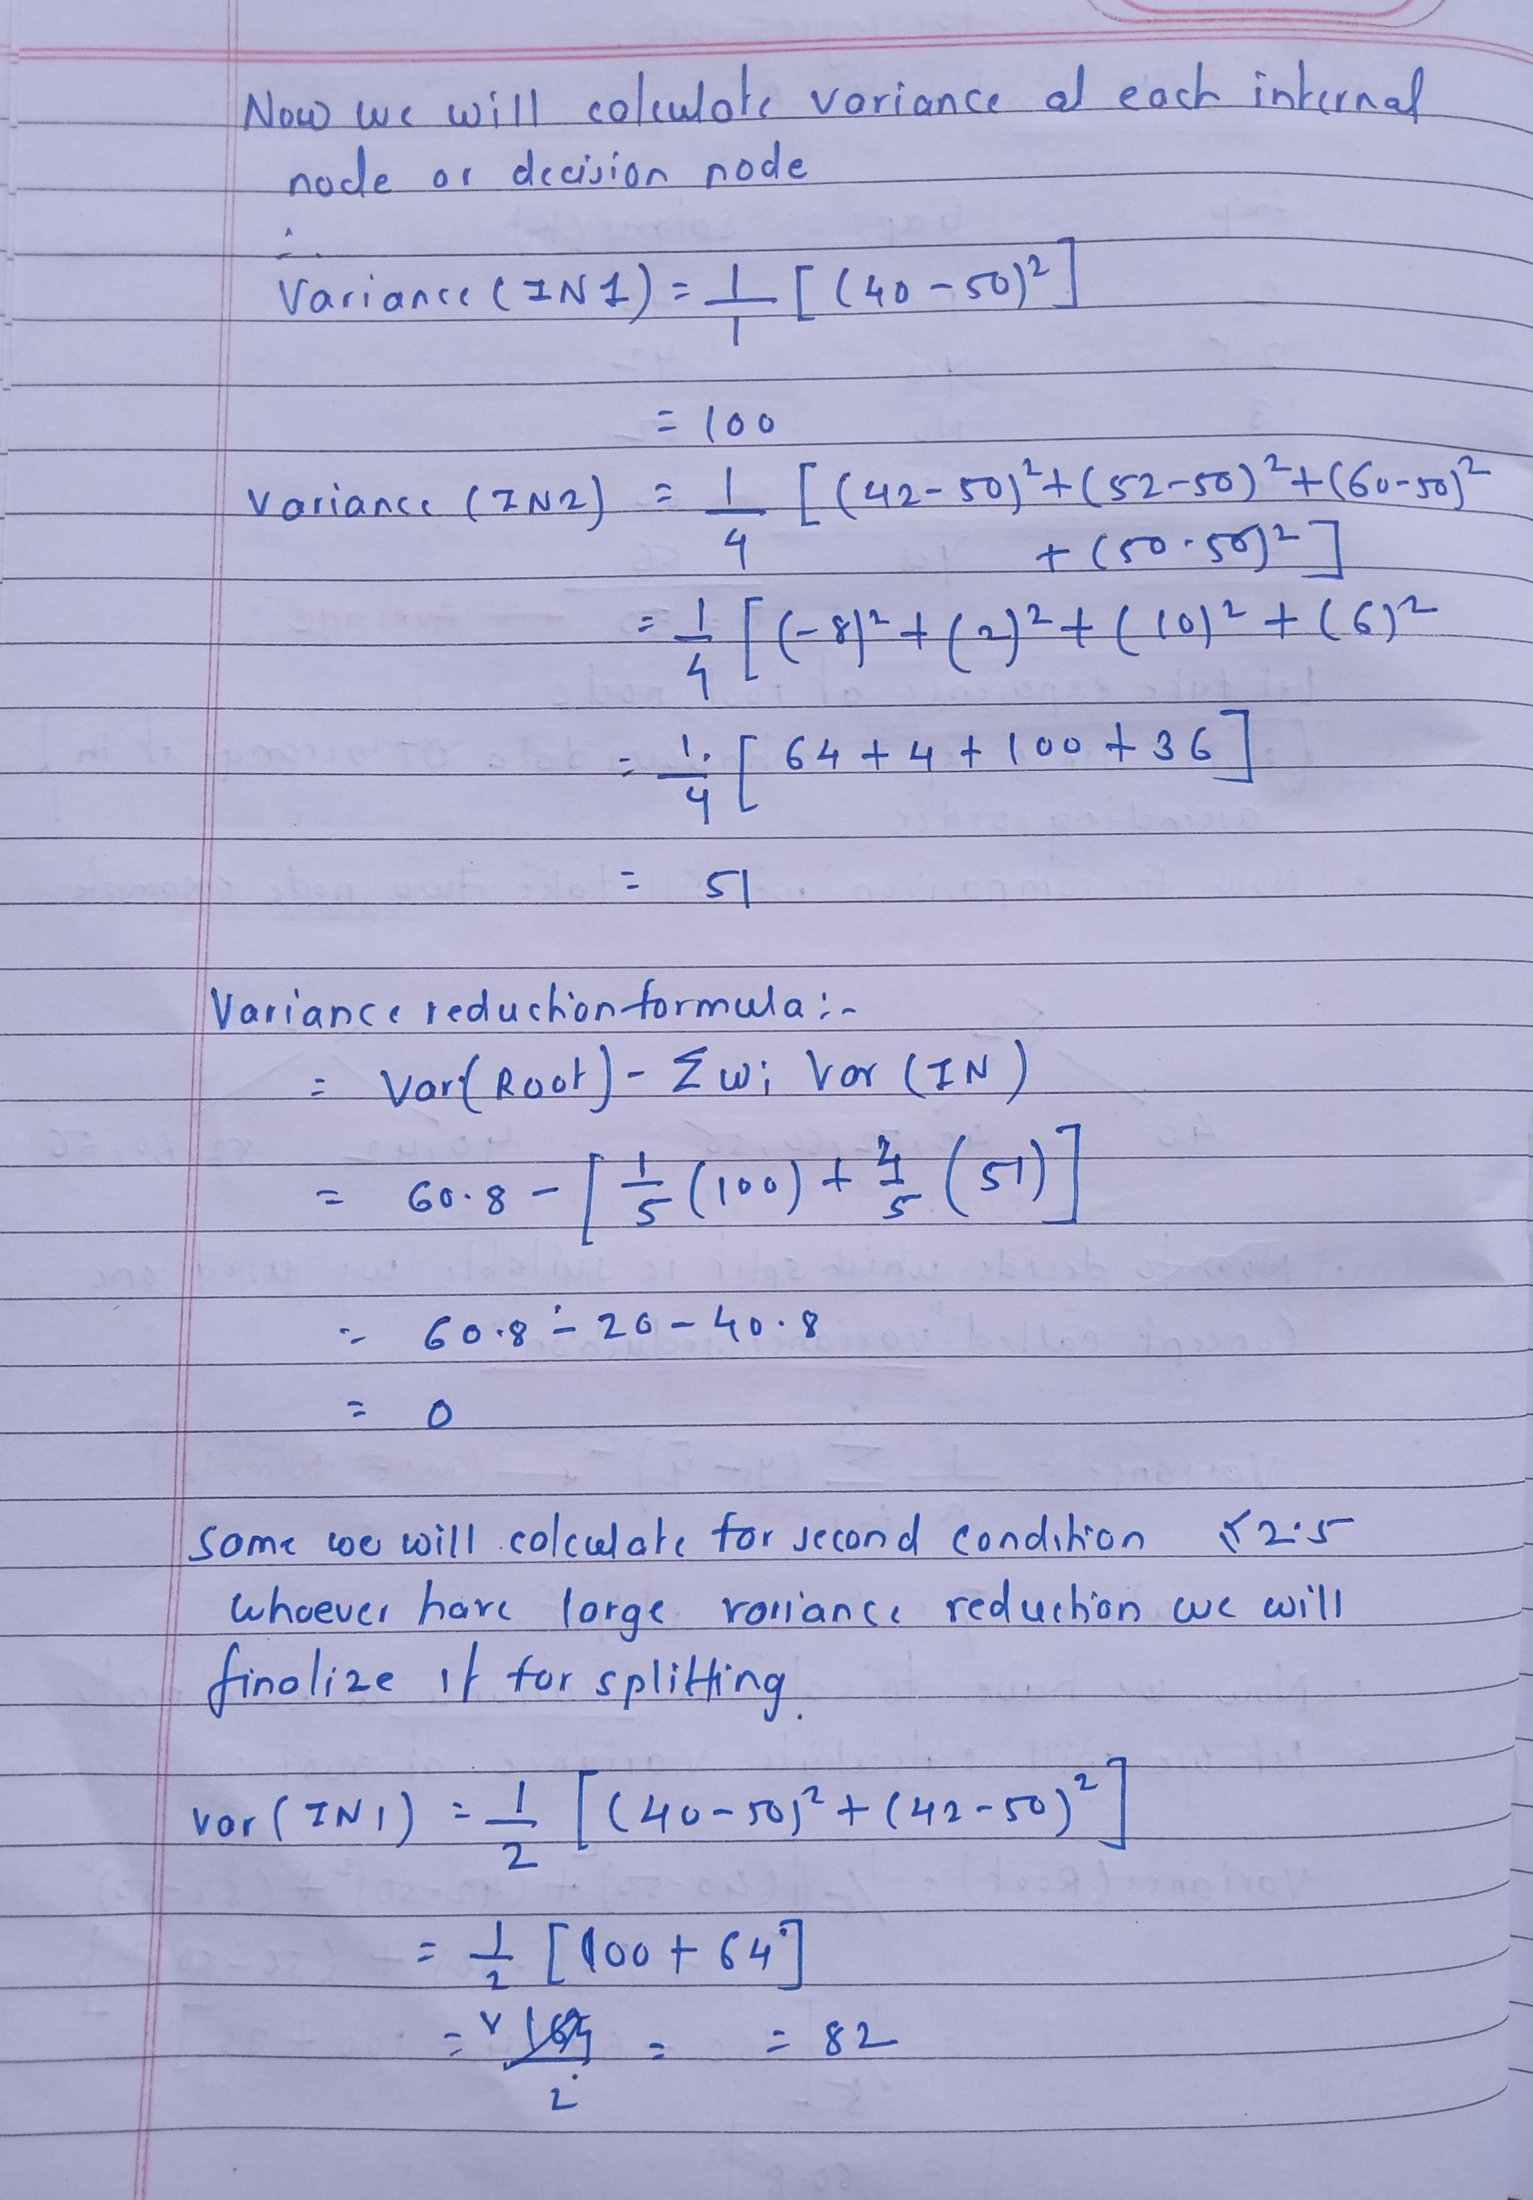 Now we will calculate variance at each internal
node or decision node
∴
Variance (IN1) = 1/1 [(40-50)²]
= 100
Variance (IN2) = 1/4 [(42-50)²+(52-50)²+(60-50)²
+ (50-50)²]
= 1/4 [(-8)²+(2)²+(10)²+(6)²
= 1/4 [64+4+100+36]
= 51
Variance reduction formula :-
= Var(Root) - Σwi Var (IN)
= 60.8 - [1/5 (100) + 4/5 (51)]
= 60.8 - 20 - 40.8
= 0
Same we will calculate for second condition ≤ 2.5
whoever have large variance reduction we will
finalize it for splitting.
var (IN1) = 1/2 [(40-50)²+(42-50)²]
= 1/2 [100+64]
= 164/2 = = 82